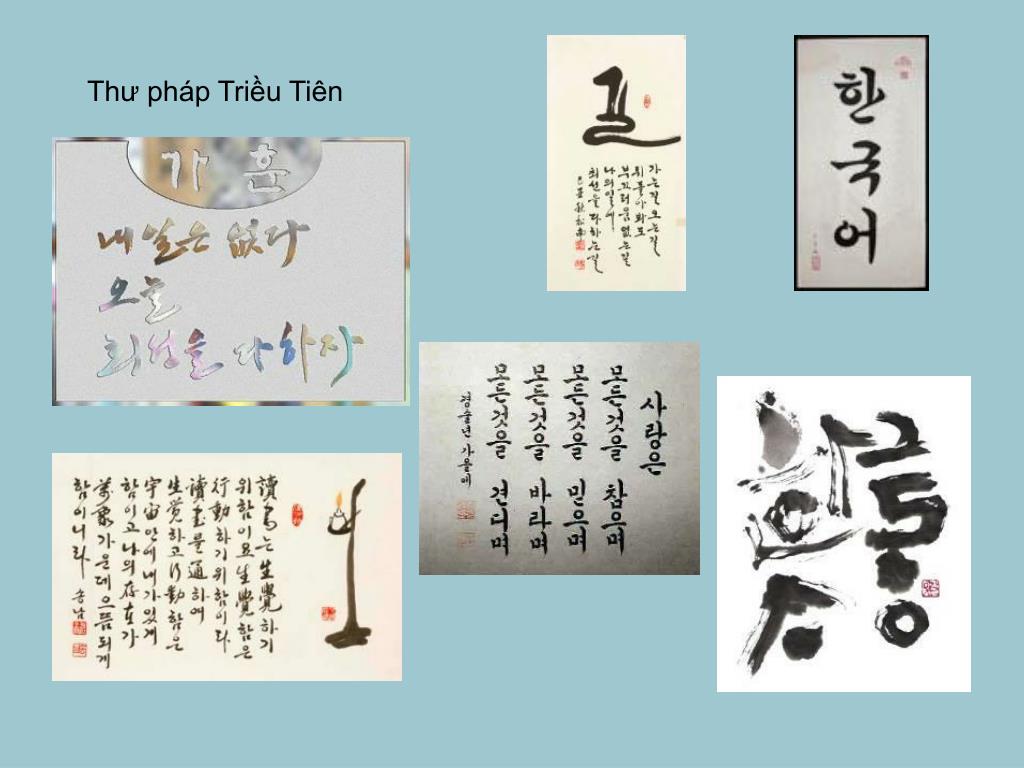 Thư pháp Triều Tiên
가훈
내일은 없다
오늘
최선을 다하자
길
가는길 오는길
뒤돌아봐도
부끄러움 없는길
나의일에
최선을 다하는길
한국어
사랑은
모든것을 참으며
모든것을 믿으며
모든것을 바라며
모든것을 견디며
경술년 가을에
讀書는 生覺하기
위함이요 生覺함은
行動하기 위함이다
讀書를 通하여
生覺하고 行動함은
宇宙안에 내가있게
함이고 나의 存在가
가운데 으뜸되게
함이니라 송남